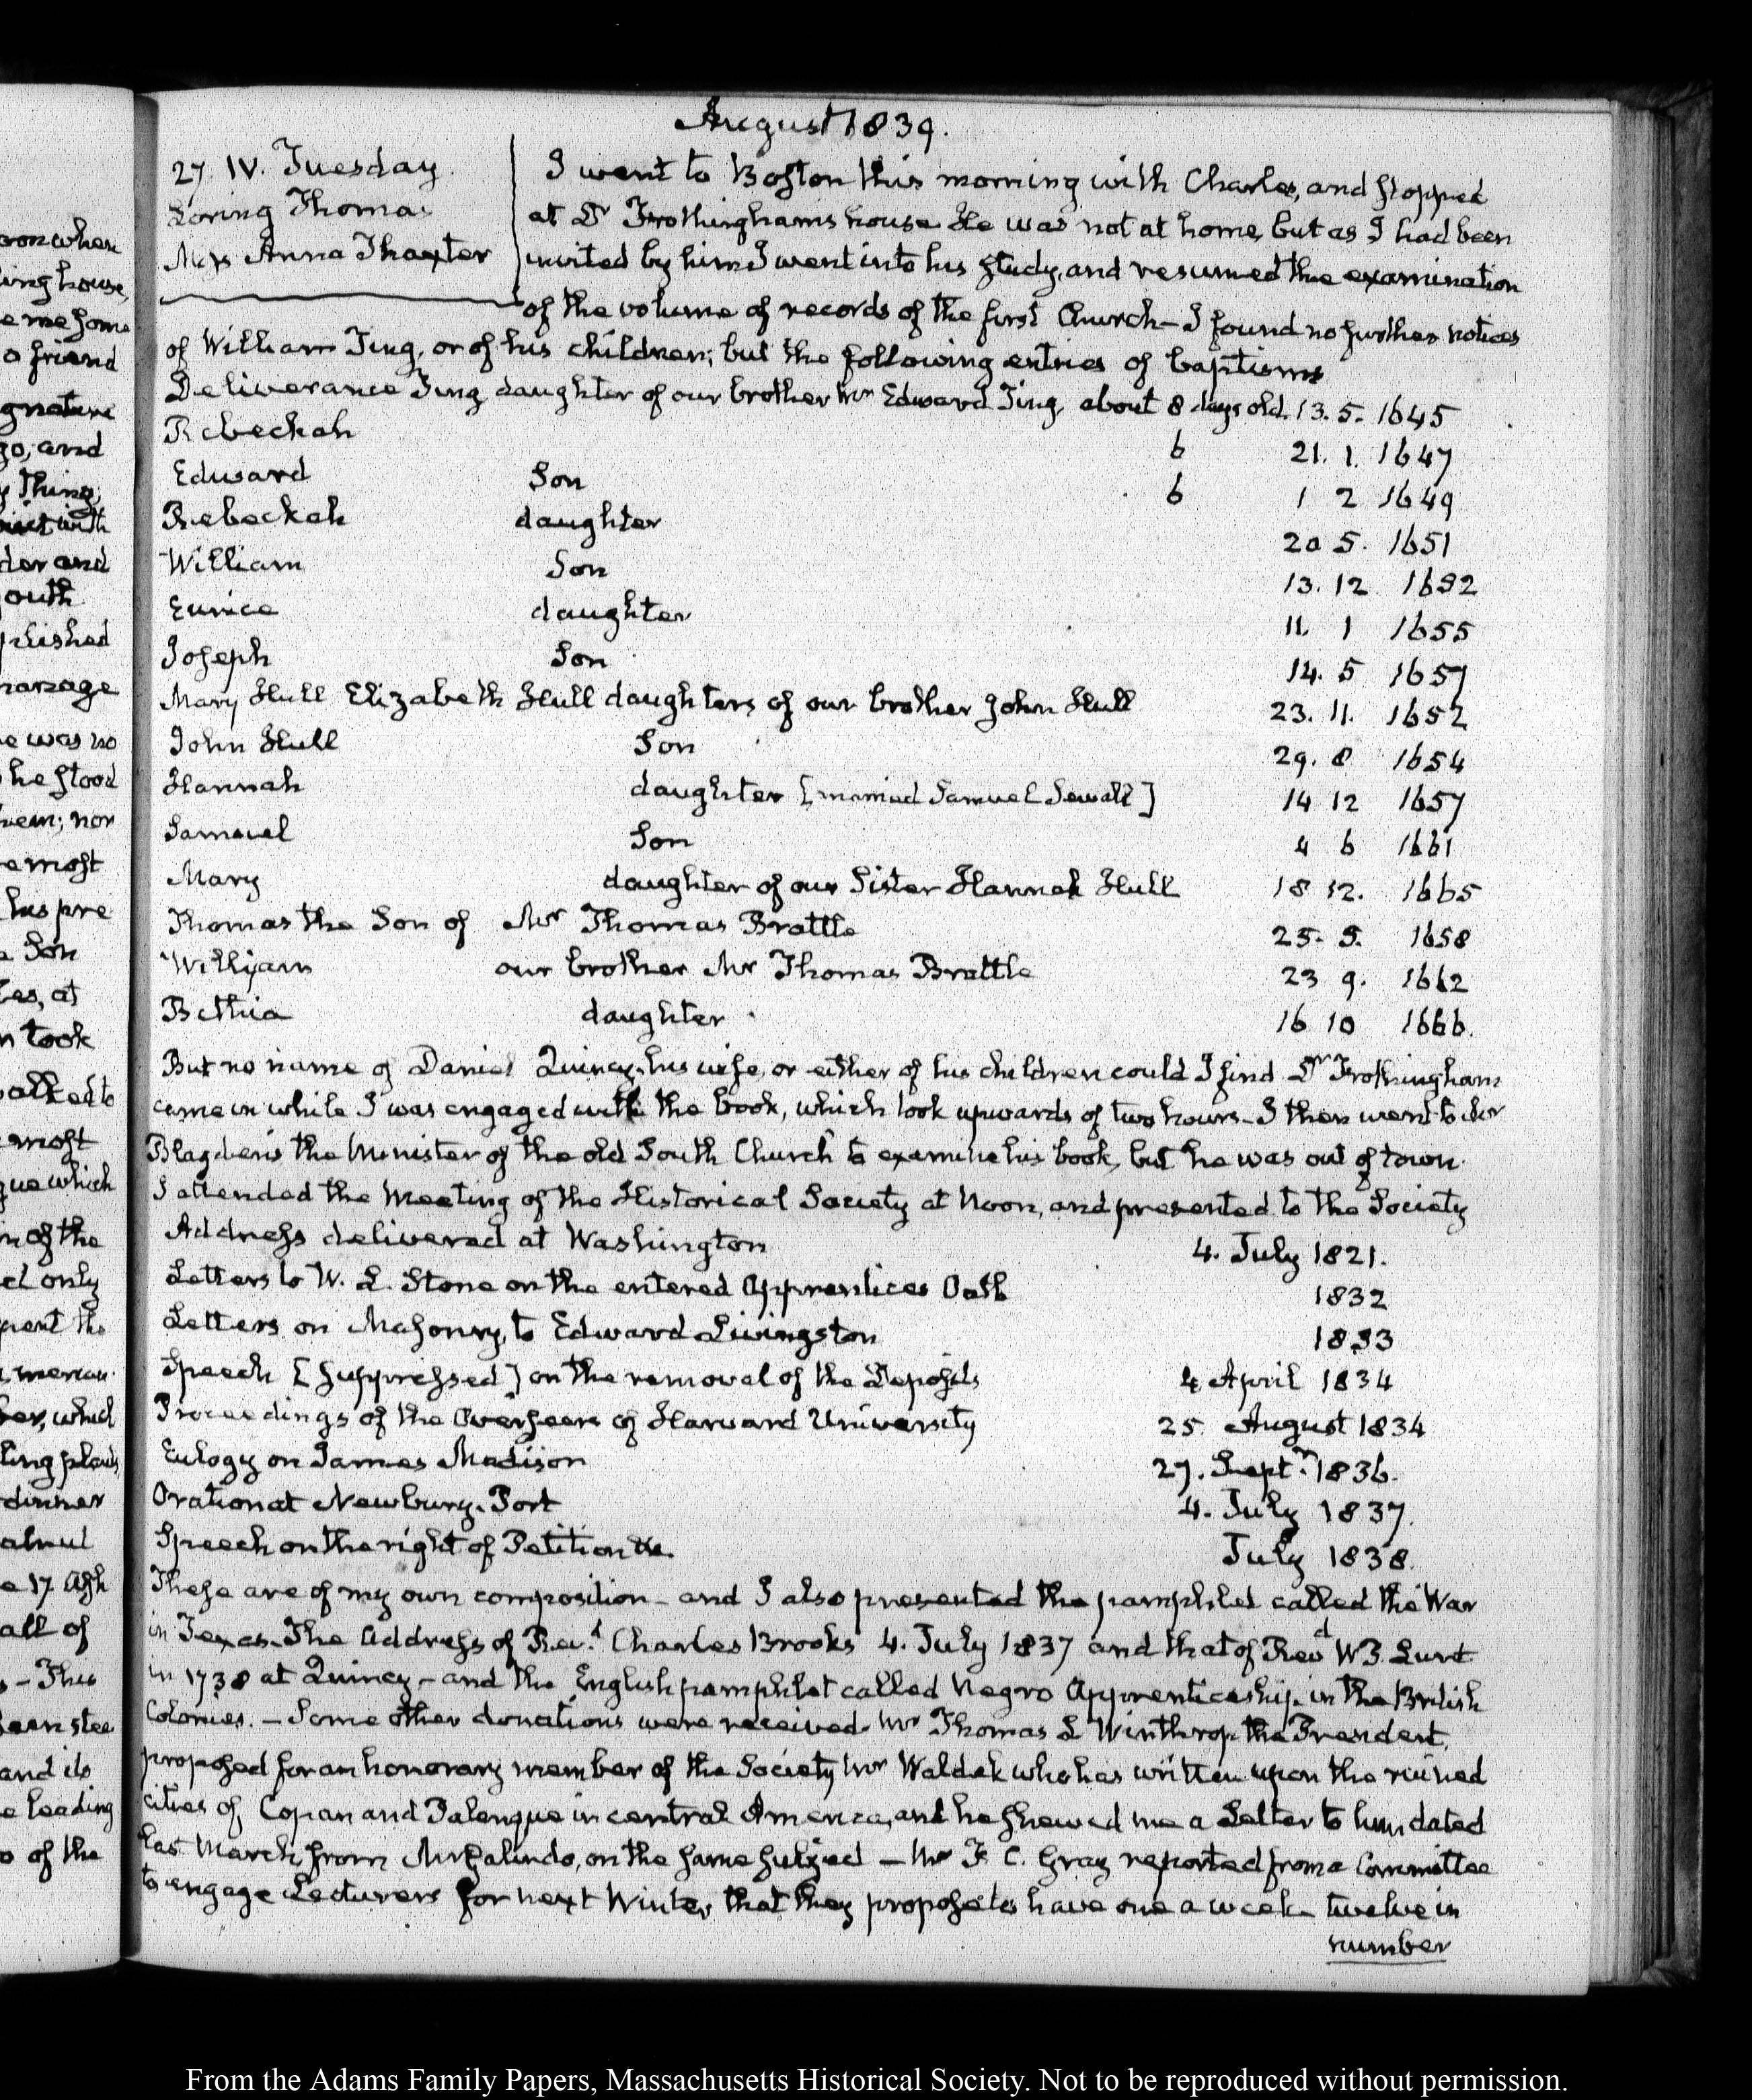 August 1839.
27. IV. Tuesday.
Loring Thomas
Mrs Anna Thaxter
I went to Boston this morning with Charles, and stopped
at Dr Frothingham's house. He was not at home, but as I had been
invited by him I went into his study, and resumed the examination
of the volume of records of the first Church – I found no further notices
of William Ting, or of his children; but the following entries of baptisms
Deliverance Ting daughter of our brother Mr Edward Ting, about 8 days old. 13. 5. 1645
Rebeckah 6 21. 1. 1647
Edward Son 6 1 2 1649
Rebeckah daughter 20 5. 1651
William Son 13. 12 1652
Eunice daughter 11. 1 1655
Joseph Son 14. 5 1657
Mary Hull Elizabeth Hull daughters of our brother John Hull 23. 11. 1652
John Hull Son 29. 8 1654
Hannah daughter [married Samuel Sewall] 14 12 1657
Samuel Son 4 6 1661
Mary daughter of our Sister Hannah Hull 18 12. 1665
Thomas the Son of Mr Thomas Brattle 25. 5. 1658
William our brother Mr Thomas Brattle 23 9. 1662
Bethia daughter 16 10 1666.
But no name of Daniel Quincy, his wife, or either of his children could I find Dr Frothingham
came in while I was engaged with the book, which took upwards of two hours – I then went to Mr
Blagden's the Minister of the old South Church to examine his book, but he was out of town.
I attended the Meeting of the Historical Society at Noon, and presented to the Society
Address delivered at Washington 4. July 1821.
Letters to W. L. Stone on the entered Apprentices Oath 1832
Letters on Masonry, to Edward Livingston 1833
Speech [suppressed] on the removal of the Deposits 4 April 1834
Proceedings of the Overseers of Harvard University 25. August 1834
Eulogy on James Madison 27. Septr 1836.
Oration at Newbury-Port 4. July 1837.
Speech on the right of Petition &c. July 1838.
These are of my own composition – and I also presented the pamphlet called the War
in Texas. The Address of Revd Charles Brooks 4. July 1837 and that of Revd W. P. Lunt
in 1738 at Quincy – and the English pamphlet called Negro Apprenticeship in the British
Colonies. – Some other donations were received. Mr Thomas L Winthrop the President,
proposed for an honorary member of the Society Mr Waldek who has written upon the ruined
cities of Copan and Palenque in central America, and he shewed me a Letter to him dated
last March, from Mr Galindo, on the same subject – Mr F. C. Gray reported from a Committee
to engage Lecturers for next Winter, that they propose to have one a week – twelve in
number
From the Adams Family Papers, Massachusetts Historical Society. Not to be reproduced without permission.